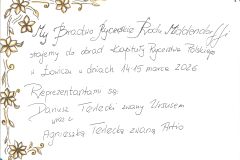 My Bractwo Rycerskie Rodu Moldendorff
stajemy do obrad Kapituły Rycerstwa Polskiego
w Łowiczu w dniach 14-15 marca 2026
Reprezentantami są:
Danusz Terlecki zwany Ursusem
oraz
Agnieszka Terlecka zwana Artio